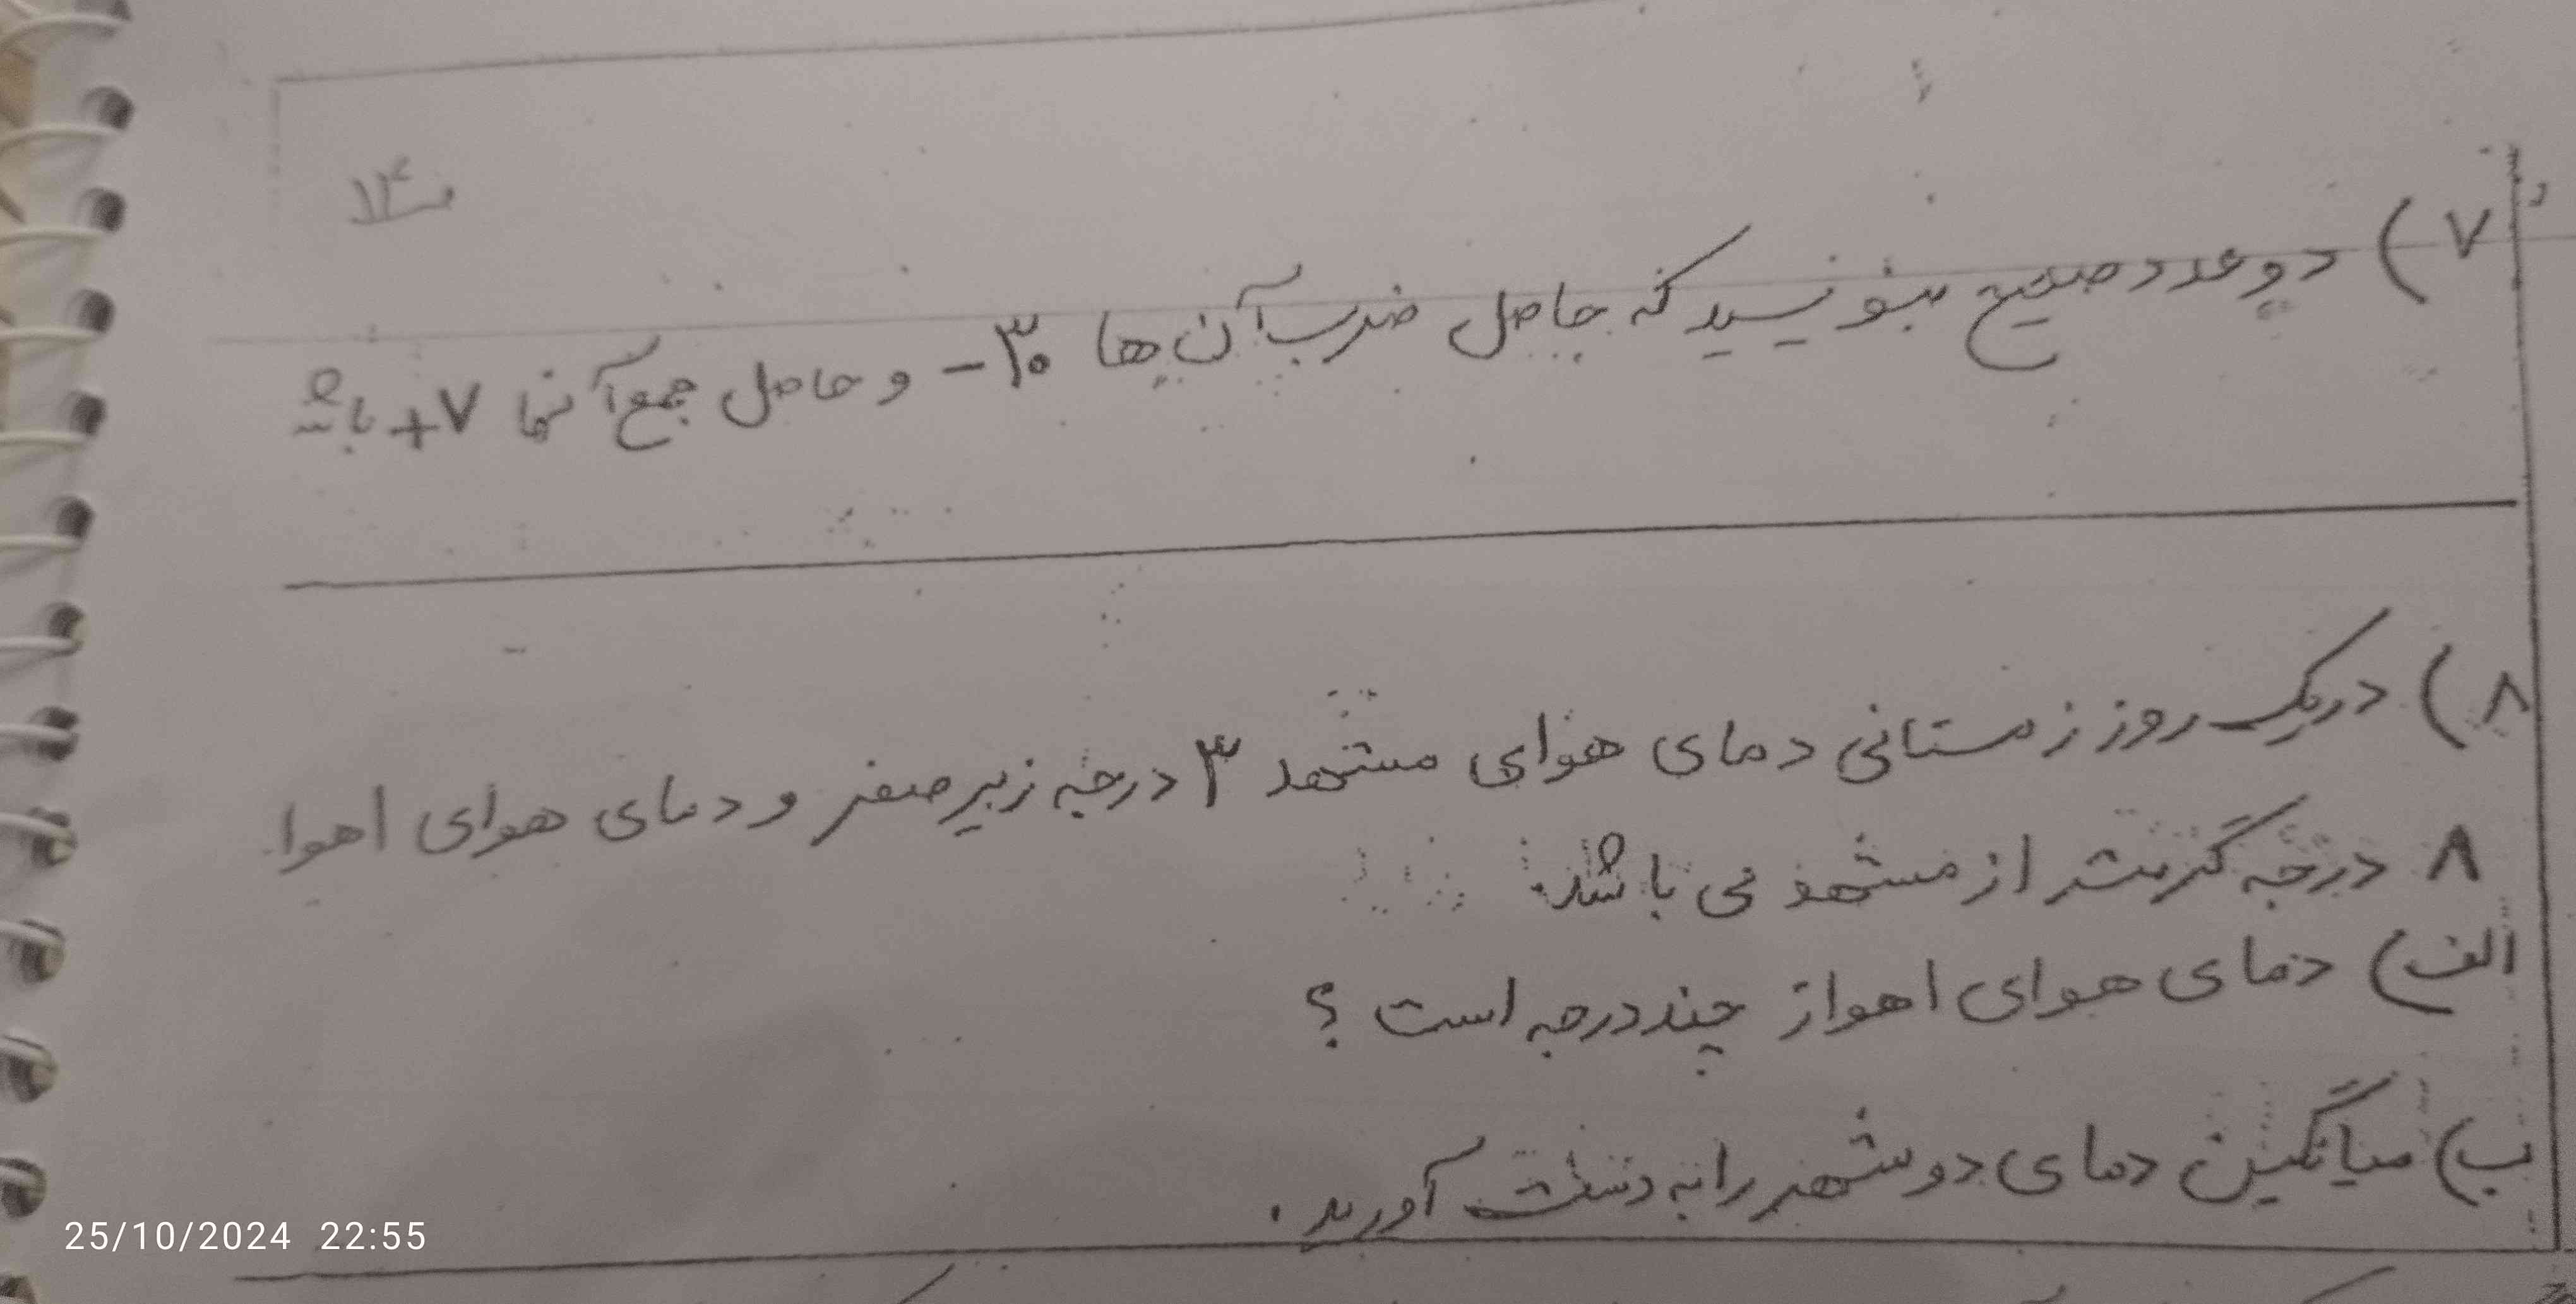 ۷) دو عدد صحیح بنویسید که حاصل ضرب آن ها ۳۰- و حاصل جمع آنها ۷+ باشد
۸) در یک روز زمستانی دمای هوای مشهد ۳ درجه زیر صفر و دمای هوای اهوا
۸ درجه گرمتر از مشهد می باشد.
الف) دمای هوای اهواز چند درجه است ؟
ب) میانگین دمای دو شهر را به دست آورید .
25/10/2024 22:55